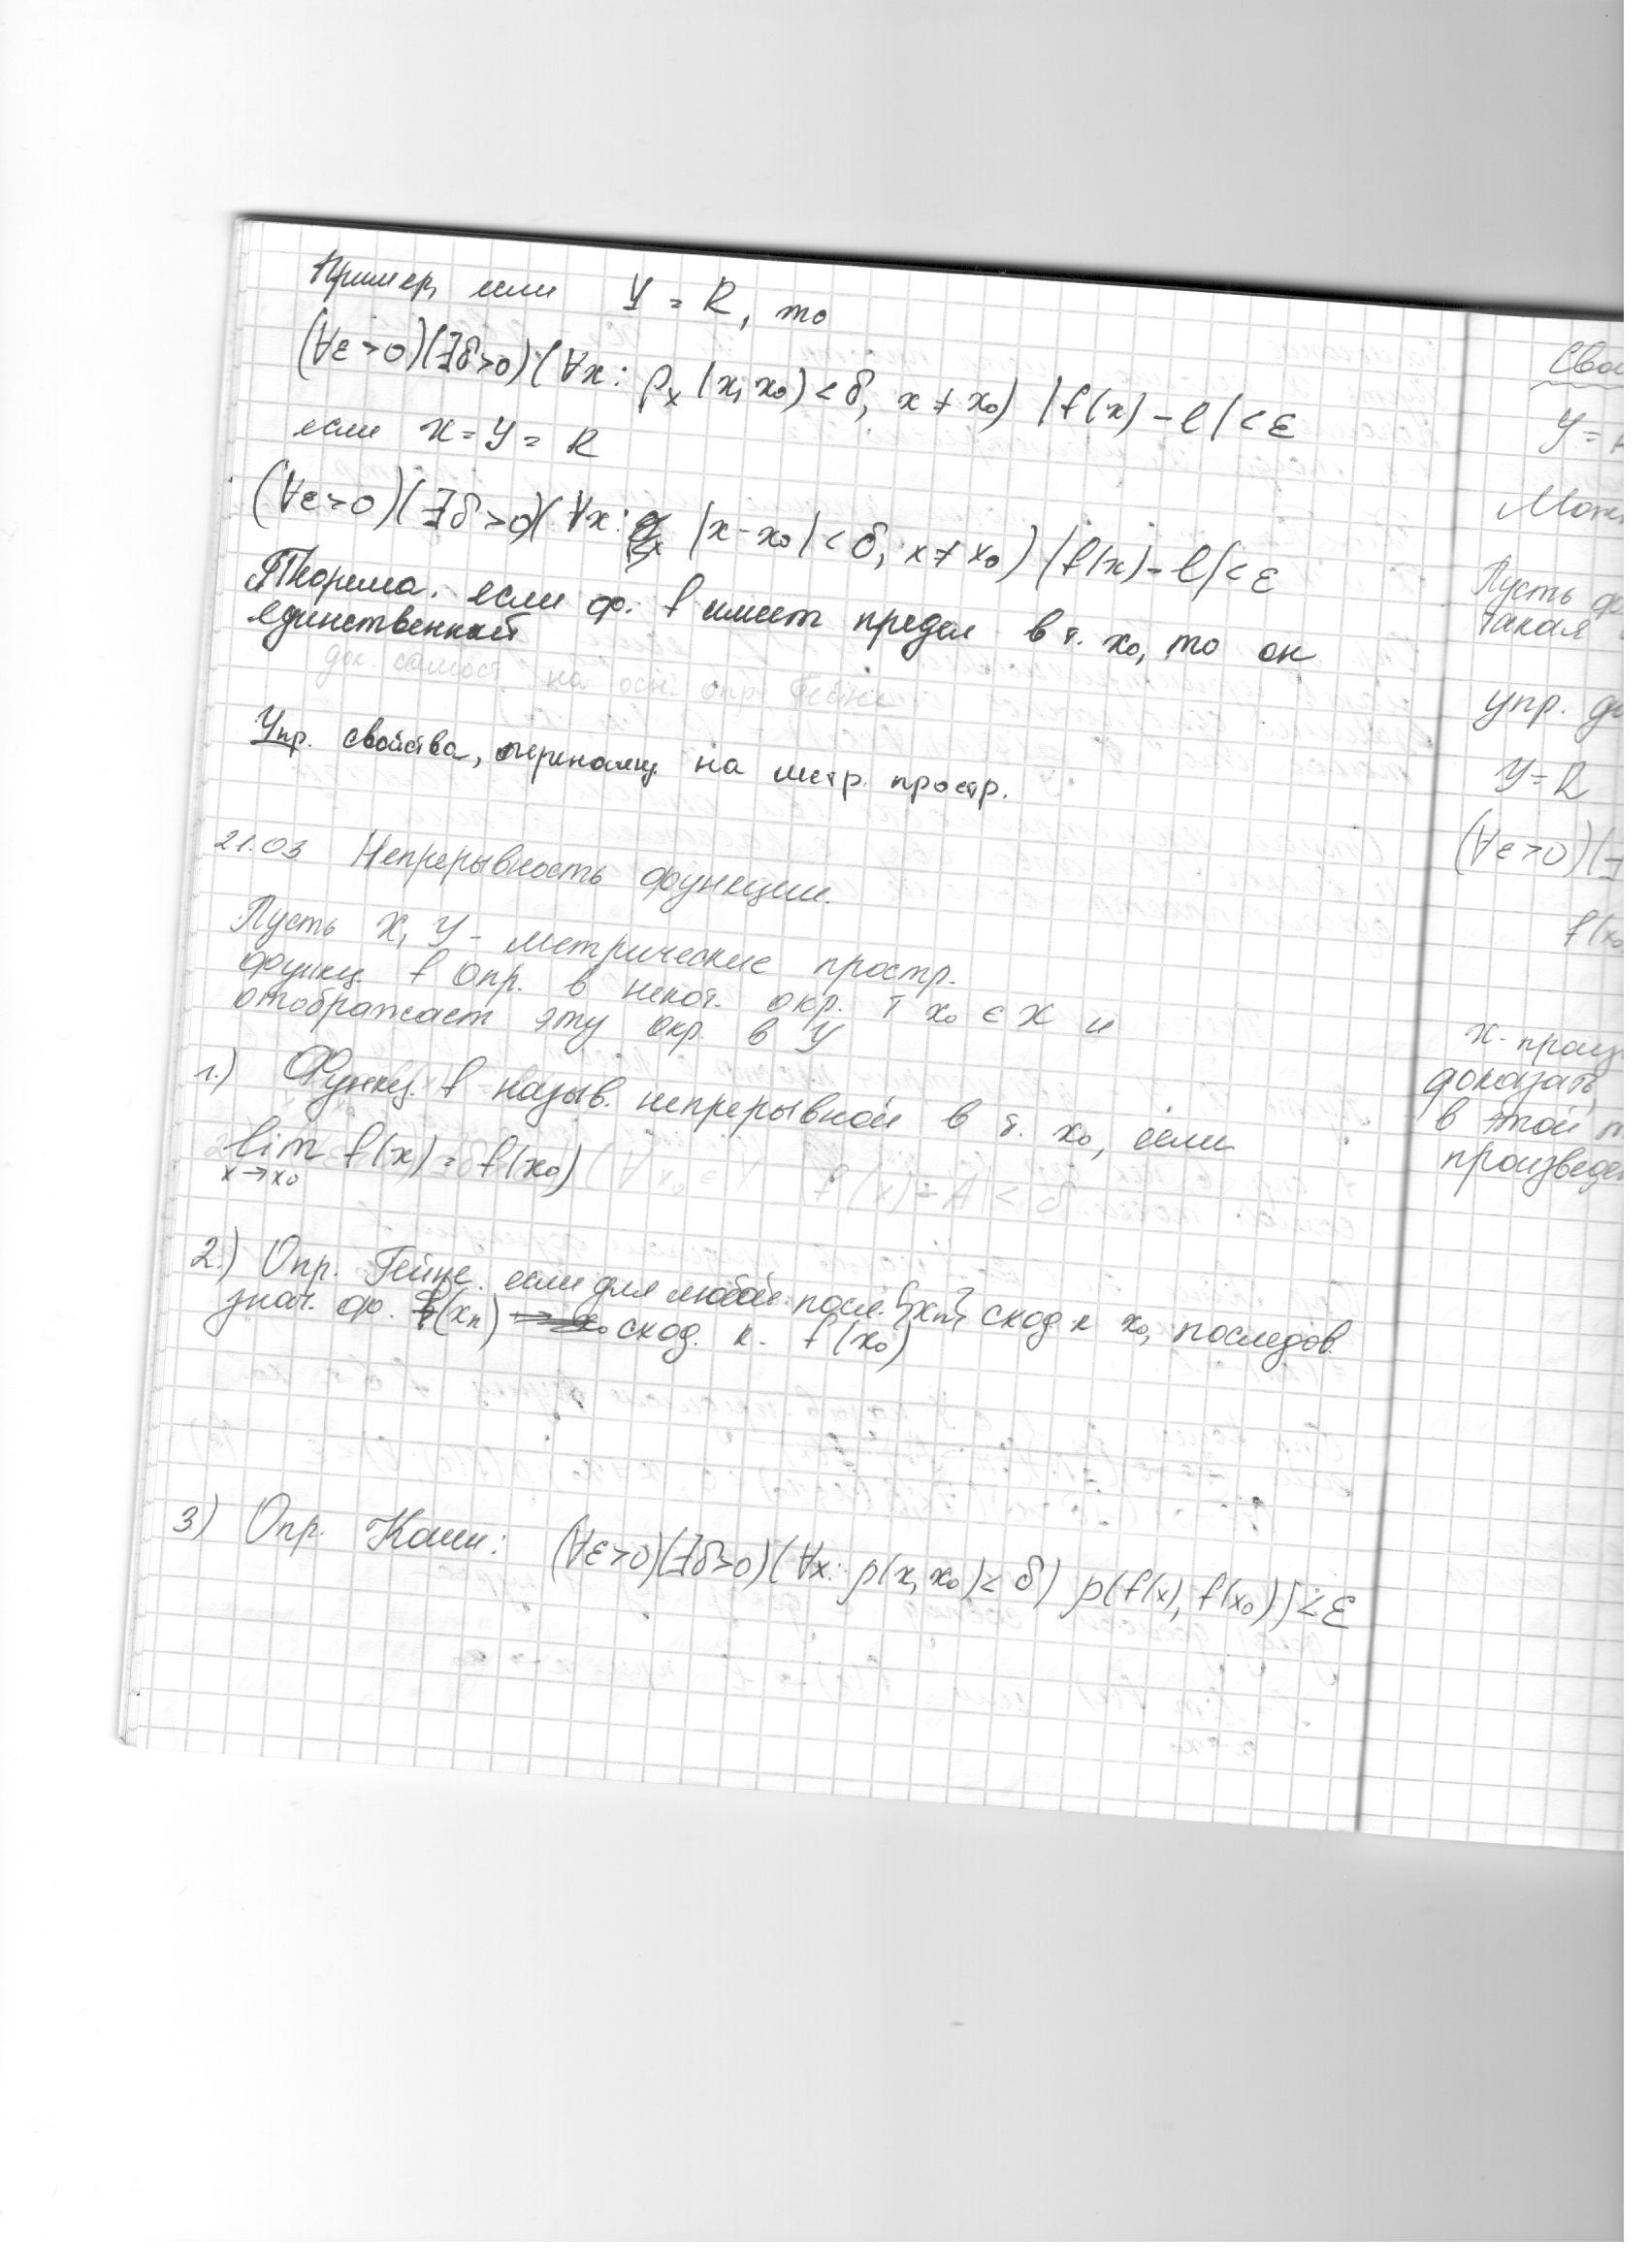 Пример, если Y = R, то
(∀ε>0)(∃δ>0)(∀x: ρₓ(x, x₀)<δ, x≠x₀) |f(x)-l|<ε
если X=Y=R
(∀ε>0)(∃δ>0)(∀x: |x-x₀|<δ, x≠x₀) |f(x)-l|<ε
Теорема. если ф. f имеет предел в т. x₀, то он
единственный
док. самост. на осн. опр. Гейне
Упр. свойства, на метр. простр.
21.03 Непрерывность функции.
Пусть X, Y - метрические простр.
функц. f опр. в некот. окр. т x₀ ∈ X и
отображает эту окр. в Y
1.) Функц. f назыв. непрерывной в т. x₀, если
lim f(x) = f(x₀)
x→x₀
2.) Опр. Гейне. если для любой посл. {xₙ} сход к x₀, последов.
знач. ф. f(xₙ) сход. к f(x₀)
3) Опр. Коши: (∀ε>0)(∃δ>0)(∀x: ρ(x, x₀)<δ) ρ(f(x), f(x₀))<ε
Y=
Пусть
такая
упр.
Y=R
(∀ε>0)(
f(x₀
доказать
в этой